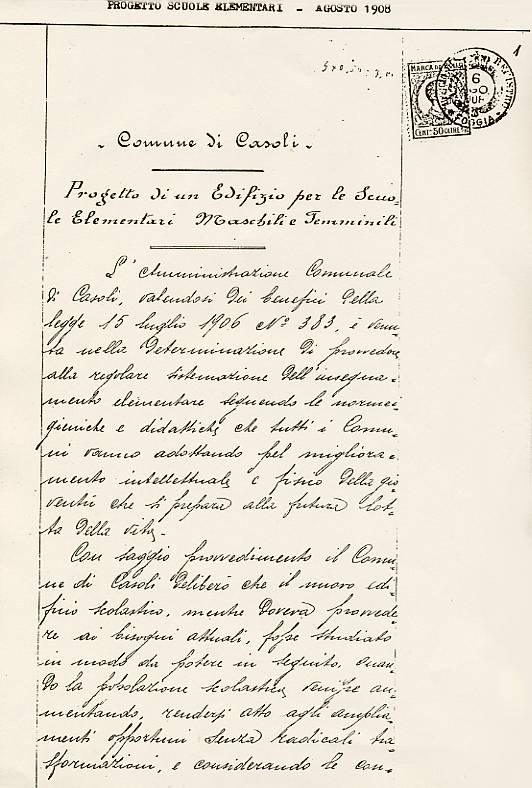 PROGETTO SCUOLE ELEMENTARI - AGOSTO 1908
1
MARCA DA
CENT. 50 OLTRE
6
FOGGIA
- Comune di Casoli -
Progetto di un Edifizio per le Scuo-
le Elementari Maschili e Femminili
L'Amministrazione Comunale
di Casoli, valendosi dei benefici della
legge 15 luglio 1906 Nº 383, è venu-
ta nella determinazione di provvedere
alla regolare sistemazione dell'insegna-
mento elementare seguendo le norme i-
gieniche e didattiche che tutti i Comu-
ni vanno adottando pel migliora-
mento intellettuale e fisico della gio-
ventù che si prepara alla futura lot-
ta della vita.
Con saggio provvedimento il Comu-
ne di Casoli deliberò che il nuovo edi-
ficio scolastico, mentre doveva provvede-
re ai bisogni attuali, fosse studiato
in modo da potere in seguito, quan-
do la popolazione scolastica venisse au-
mentando, rendersi atto agli amplia-
menti opportuni senza radicali tra-
sformazioni, e considerando le con-